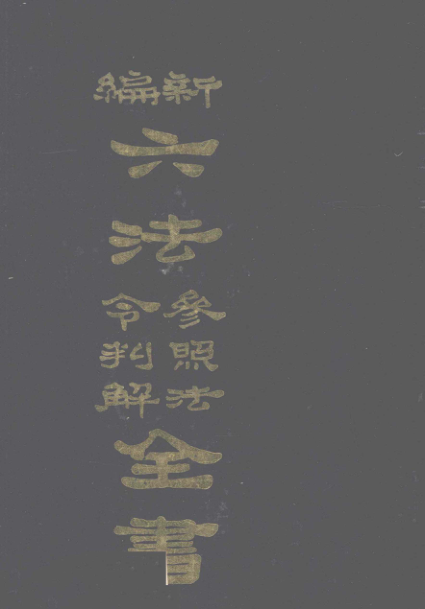 新編
六法
參照法
令判解
全書